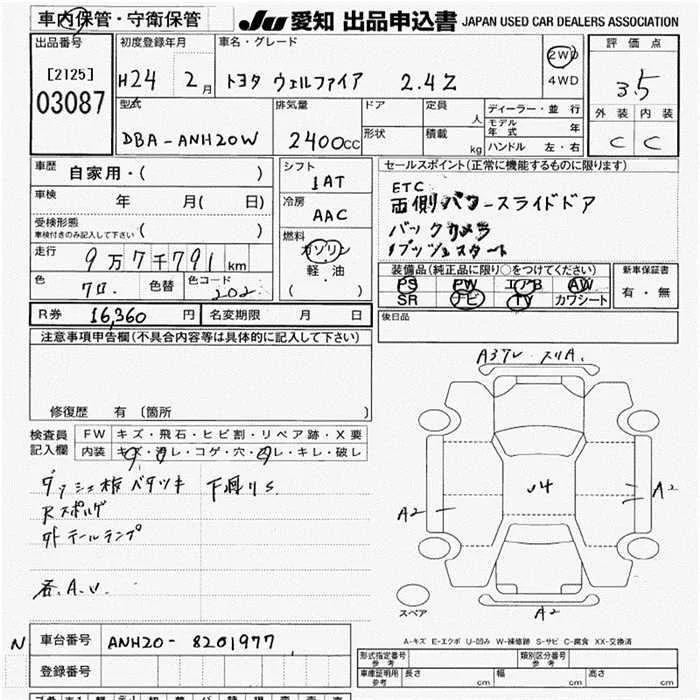 車内保管・守衛保管
JU 愛知 出品申込書 JAPAN USED CAR DEALERS ASSOCIATION
出品番号
[2125]
03087
初度登録年月
H24年 2月
車名・グレード
トヨタ ヴェルファイア 2.4Z
2WD
4WD
評価点
3.5
外装 内装
C C
型式
DBA-ANH20W
排気量
2400cc
ドア
形状
定員 人
積載 kg
ディーラー・並行
モデル年式 年
ハンドル 左・右
車歴
自家用・( )
車検
年 月( 日)
受検形態
車検付きのみ記入して下さい ( )
走行
9万7千791km
色
クロ
色替
色コード
202
シフト
1AT
冷房
AAC
燃料
ガソリン
軽油
( )
セールスポイント(正常に機能するものに限ります)
ETC
両側パワースライドドア
バックカメラ
プッシュスタート
装備品(純正品に限り○をつけてください)
PS PW エアB AW
SR ナビ TV カワシート
新車保証書
有・無
R券 16,360円
名変期限 月 日
後日品
注意事項申告欄(不具合内容等は具体的に記入して下さい)
修復歴 有〔箇所 〕
検査員
記入欄
FW キズ・飛石・ヒビ割・リペア跡・X要
内装 キズ・汚レ・コゲ・穴・スレ・キレ・破レ
ダッシュ板バタツキ 下廻りS
外テールランプ
各.A.U.
A3 フレ スリA.
A2
A2
A2
スペア
A-キズ E-エクボ U-凹み W-補修跡 S-サビ C-腐食 XX-交換済
N
車台番号 ANH20-8201977
登録番号
形式指定番号 参考
類別区分番号 参考
車庫証明用 参考
長さ cm 幅 cm 高さ cm